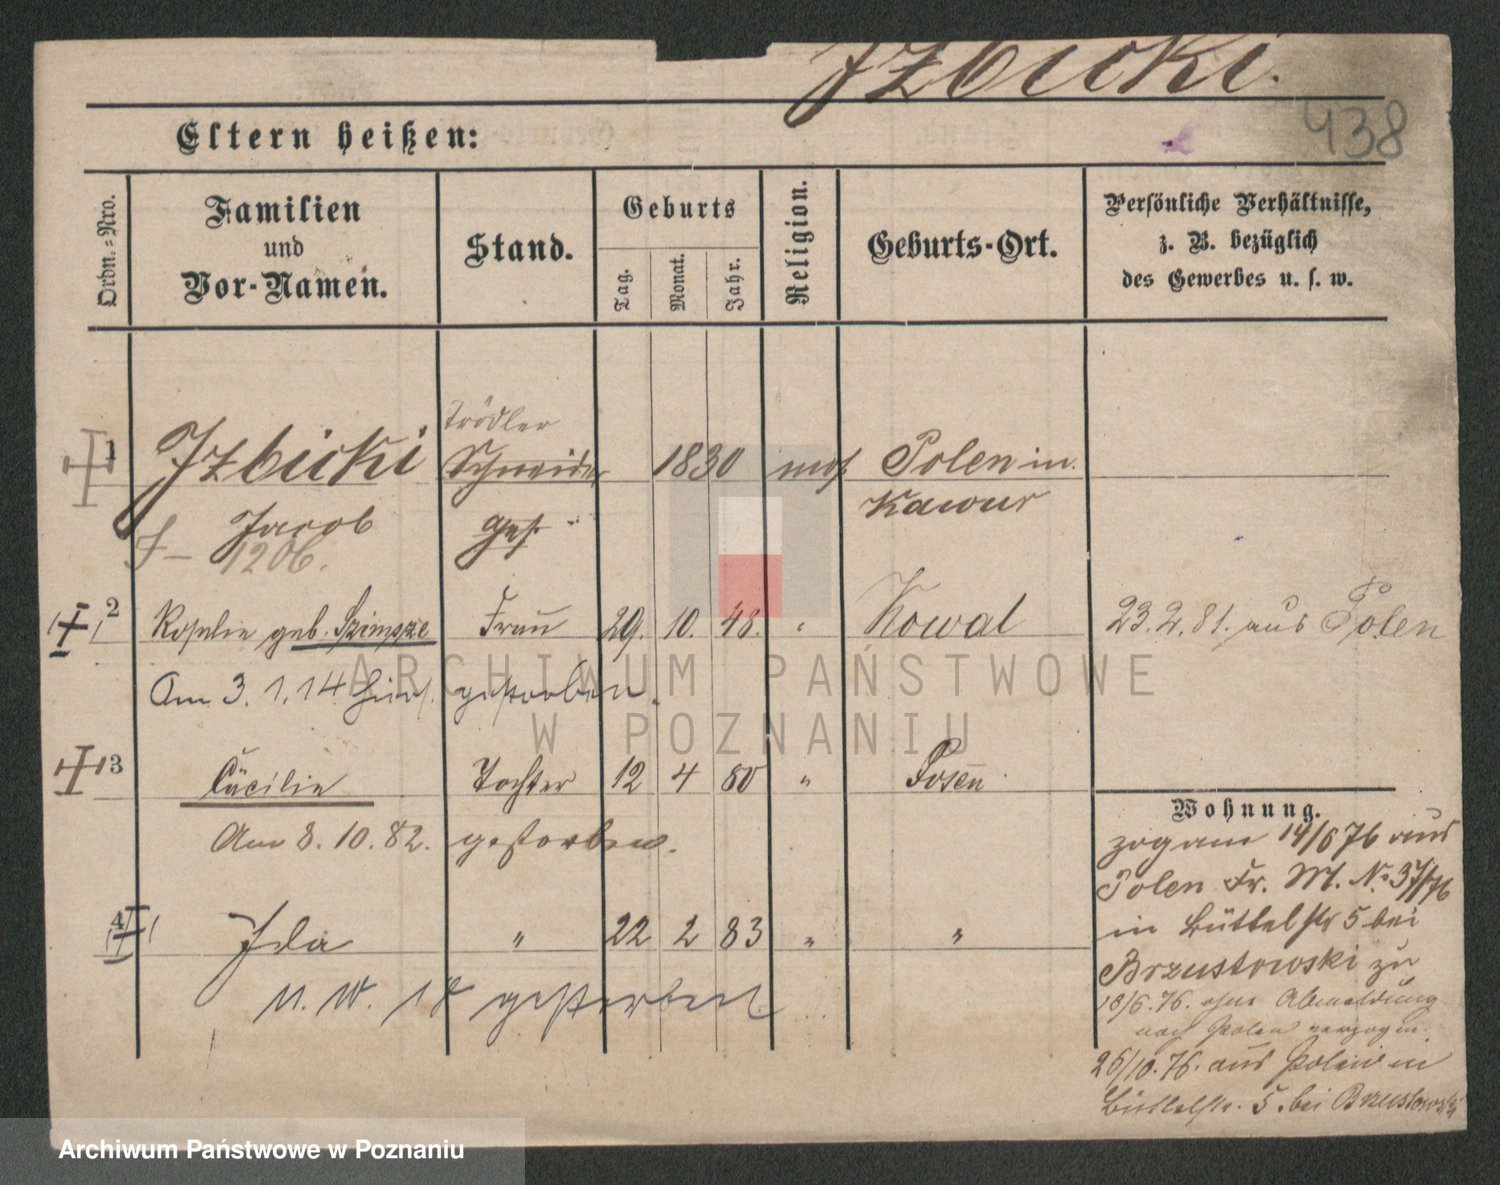 Izbicki.
438
Eltern heißen:
Ordn.-Nro.
Familien
und
Vor-Namen.
Stand.
Geburts
Tag.
Monat.
Jahr.
Religion.
Geburts-Ort.
Persönliche Verhältnisse,
z. B. bezüglich
des Gewerbes u. s. w.
Trödler
1 Izbicki Schneider 1830 mos Polen in
Jacob Ges. Kawur
1206.
2 Rosalie geb. Szimsze Frau 29. 10. 48. " Kowal 23.2.81. aus Polen
Am 3. 1. 14 hier gestorben.
3 Cäcilie Tochter 12 4 80 " Posen
Am 8. 10. 82. gestorben.
4 Ida " 22 2 83 " "
n. W. 18 gestorben
Wohnung.
zog am 14/6 76 aus
Polen Fr. M. No 37/76
in Büttelstr 5 bei
Brzustowski zu
18/6. 76. ohne Abmeldung
nach Polen verzogen.
26/10. 76. aus Polen in
Büttelstr. 5. bei Brzustowski
ARCHIWUM PAŃSTWOWE
W POZNANIU
Archiwum Państwowe w Poznaniu